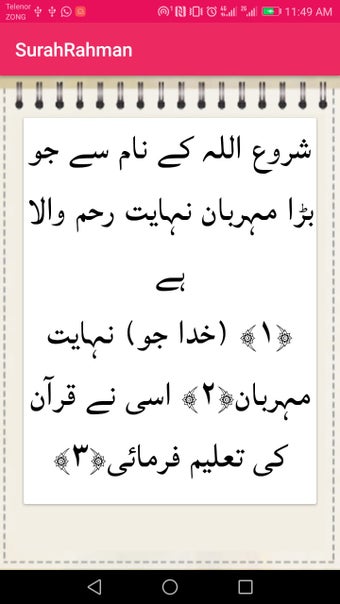 Telenor
ZONG
11:49 AM
SurahRahman
شروع اللہ کے نام سے جو
بڑا مہربان نہایت رحم والا
ہے
﴿۱﴾ (خدا جو) نہایت
مہربان﴿۲﴾ اسی نے قرآن
کی تعلیم فرمائی﴿۳﴾